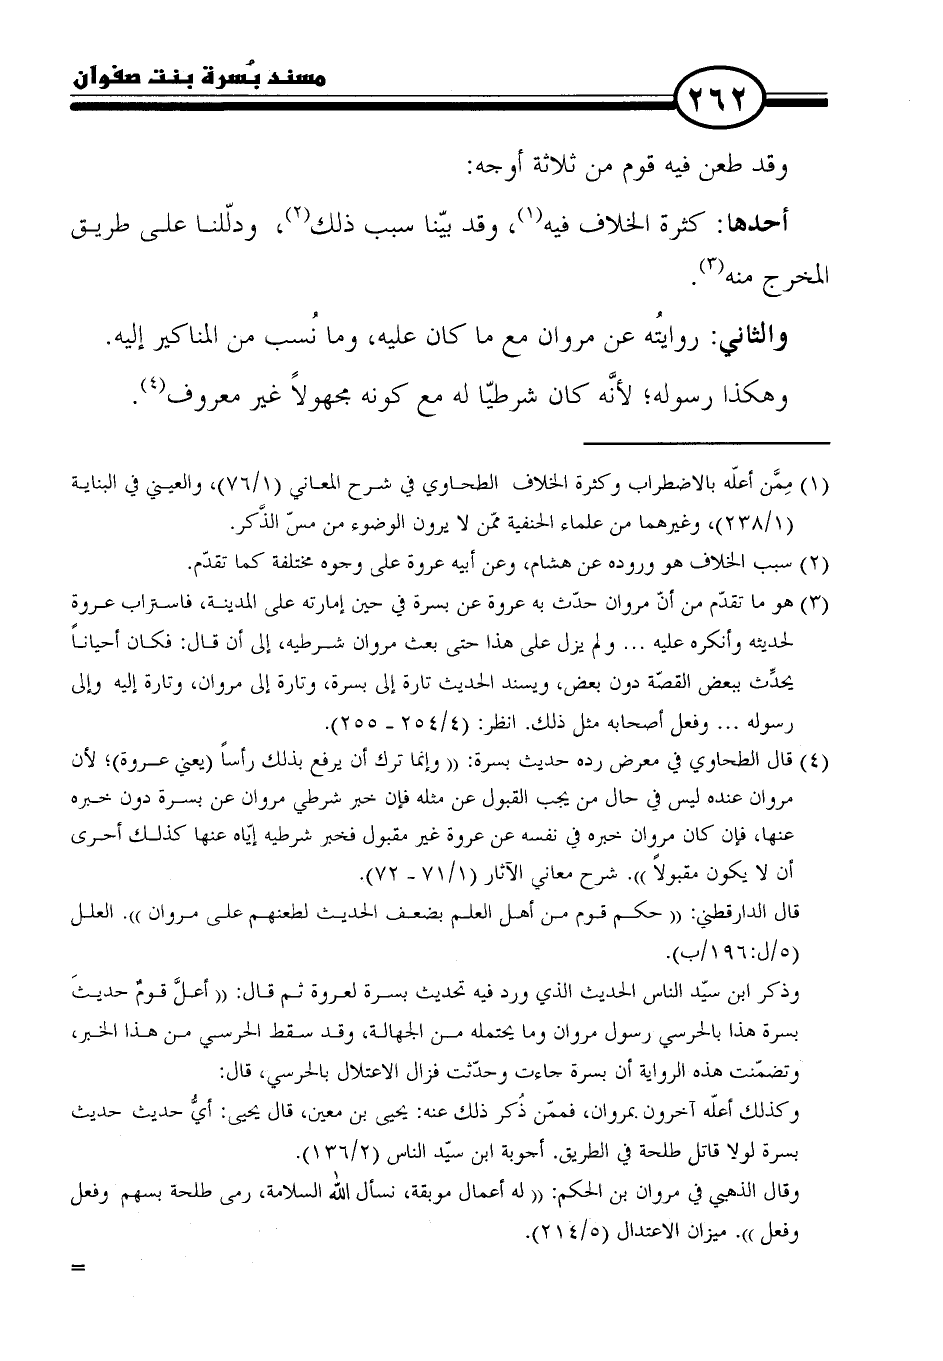 مسند بُسرة بنت صفوان
٢٦٢
وقد طعن فيه قوم من ثلاثة أوجه:
أحدها: كثرة الخلاف فيه(١)، وقد بيّنا سبب ذلك(٢)، ودلّلنا على طريق
المخرج منه(٣).
والثاني: روايتُه عن مروان مع ما كان عليه، وما نُسب من المناكير إليه.
وهكذا رسوله؛ لأنَّه كان شرطيّا له مع كونه مجهولاً غير معروف(٤).
(١) مِمَّن أعلّه بالاضطراب وكثرة الخلاف الطحاوي في شرح المعاني (٧٦/١)، والعيني في البناية
(٢٣٨/١)، وغيرهما من علماء الحنفية ممّن لا يرون الوضوء من مسّ الذَّكر.
(٢) سبب الخلاف هو وروده عن هشام، وعن أبيه عروة على وجوه مختلفة كما تقدّم.
(٣) هو ما تقدّم من أنّ مروان حدّث به عروة عن بسرة في حين إمارته على المدينة، فاستراب عروة
لحديثه وأنكره عليه ... ولم يزل على هذا حتى بعث مروان شرطيه، إلى أن قال: فكان أحياناً
يحدِّث ببعض القصّة دون بعض، ويسند الحديث تارة إلى بسرة، وتارة إلى مروان، وتارة إليه وإلى
رسوله ... وفعل أصحابه مثل ذلك. انظر: (٢٥٤/٤ ـ ٢٥٥).
(٤) قال الطحاوي في معرض رده حديث بسرة: (( وإنما ترك أن يرفع بذلك رأساً (يعني عروة)؛ لأن
مروان عنده ليس في حال من يجب القبول عن مثله فإن خبر شرطي مروان عن بسرة دون خبره
عنها، فإن كان مروان خبره في نفسه عن عروة غير مقبول فخبر شرطيه إيّاه عنها كذلك أحرى
أن لا يكون مقبولاً )). شرح معاني الآثار (٧١/١ ـ ٧٢).
قال الدارقطني: (( حكم قوم من أهل العلم بضعف الحديث لطعنهم على مروان )). العلل
(٥/ل:١٩٦/ب).
وذكر ابن سيّد الناس الحديث الذي ورد فيه تحديث بسرة لعروة ثم قال: (( أعلَّ قومٌ حديثَ
بسرة هذا بالحرسي رسول مروان وما يحتمله من الجهالة، وقد سقط الحرسي من هذا الخبر،
وتضمّنت هذه الرواية أن بسرة جاءت وحدّثت فزال الاعتلال بالحرسي، قال:
وكذلك أعلّه آخرون بمروان، فممّن ذُكر ذلك عنه: يحيى بن معين، قال يحيى: أيُّ حديث حديث
بسرة لولا قاتل طلحة في الطريق. أجوبة ابن سيّد الناس (١٣٦/٢).
وقال الذهبي في مروان بن الحكم: (( له أعمال موبقة، نسأل الله السلامة، رمى طلحة بسهم وفعل
وفعل )). ميزان الاعتدال (٢١٤/٥).
=